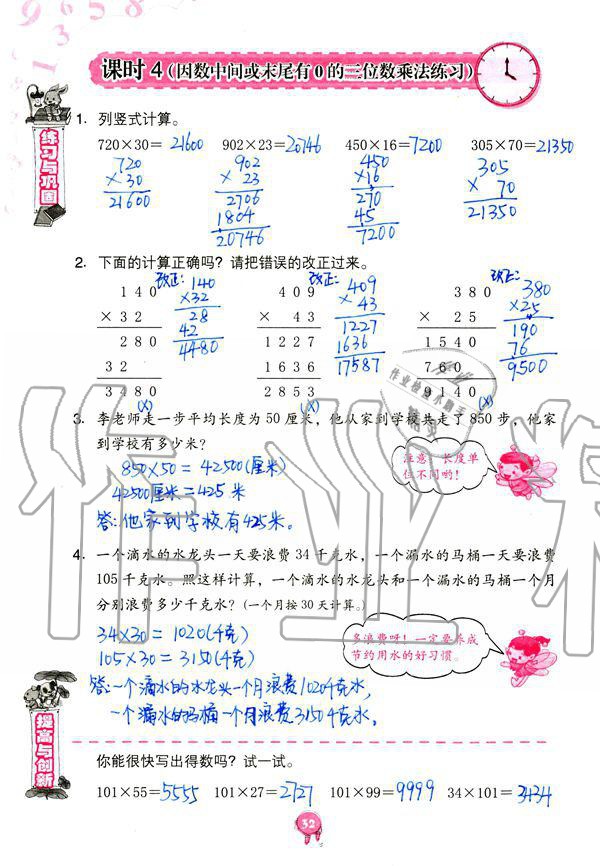 课时4(因数中间或末尾有0的三位数乘法练习)
练习与巩固
1. 列竖式计算。
720×30=21600 902×23=20746 450×16=7200 305×70=21350
720 902 450 305
×30 ×23 ×16 ×70
21600 2706 270 21350
1804 45
20746 7200
2. 下面的计算正确吗？请把错误的改正过来。
改正: 改正: 改正:
140 140 409 409 380 380
×32 ×32 ×43 ×43 ×25 ×25
280 28 1227 1227 1540 190
32 42 1636 1636 760 76
3480 4480 2853 17587 9140 9500
(X) (X) (X)
3. 李老师走一步平均长度为50厘米，他从家到学校共走了850步，他家
到学校有多少米？
850×50=42500(厘米)
42500厘米=425米
答:他家到学校有425米。
注意，长度单
位不同哟！
4. 一个滴水的水龙头一天要浪费34千克水，一个漏水的马桶一天要浪费
105千克水。照这样计算，一个滴水的水龙头和一个漏水的马桶一个月
分别浪费多少千克水？(一个月按30天计算。)
34×30=1020(千克)
105×30=3150(千克)
多浪费呀！一定要养成
节约用水的好习惯。
答:一个滴水的水龙头一个月浪费1020千克水,
一个漏水的马桶一个月浪费3150千克水。
提高与创新
你能很快写出得数吗？试一试。
101×55=5555 101×27=2727 101×99=9999 34×101=3434
32